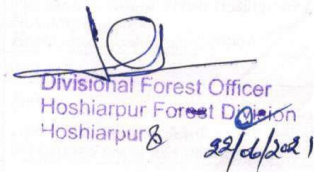 Divisional Forest Officer
Hoshiarpur Forest Division
Hoshiarpur
22/06/2021